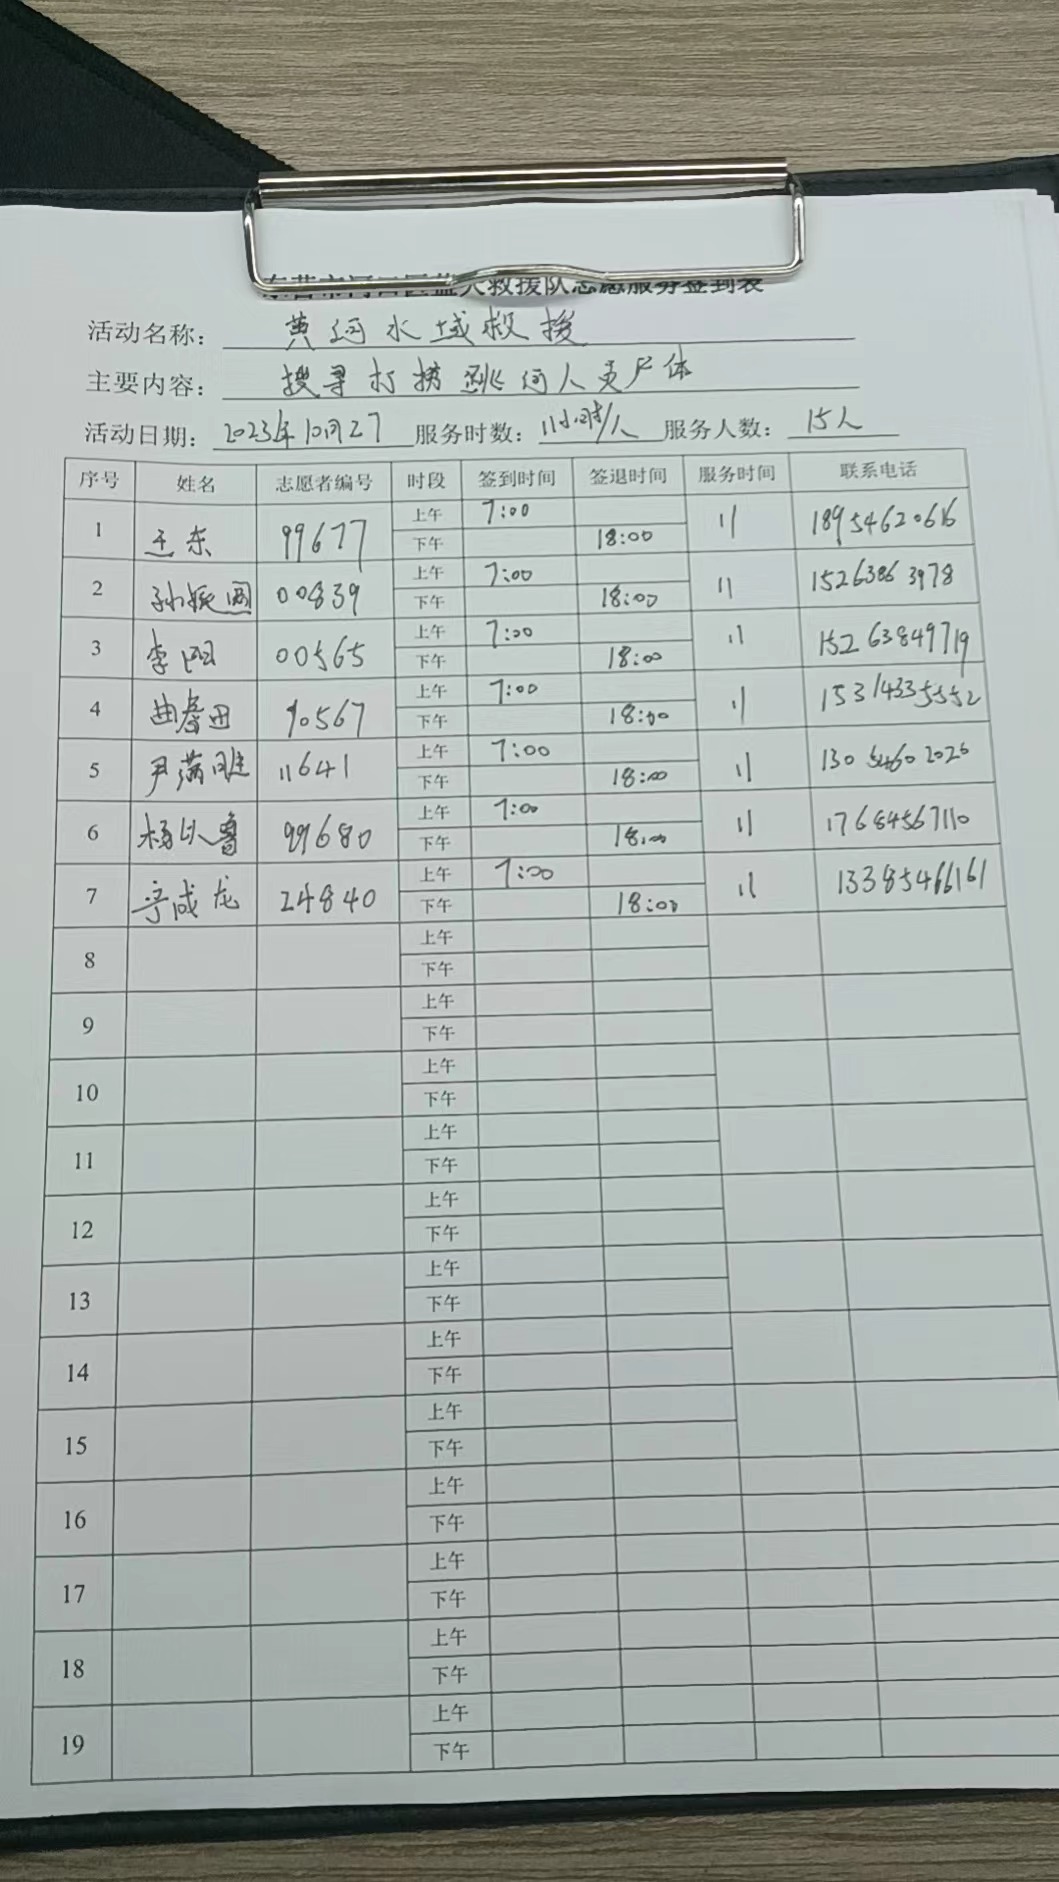 东营市河口区蓝天救援队志愿服务签到表
活动名称: 黄河水域救援
主要内容: 搜寻打捞跳河人员尸体
活动日期: 2023年10月27 服务时数: 11小时/人 服务人数: 15人
序号 姓名 志愿者编号 时段 签到时间 签退时间 服务时间 联系电话
1 王东 99677 上午 7:00 11 18954620616
下午 18:00
2 孙振国 00839 上午 7:00 11 15263863978
下午 18:00
3 李阳 00565 上午 7:00 11 15263849719
下午 18:00
4 曲春田 90567 上午 7:00 11 15314335552
下午 18:00
5 尹满胜 11641 上午 7:00 11 13054602026
下午 18:00
6 杨以鲁 99680 上午 7:00 11 17684567110
下午 18:00
7 成龙 24840 上午 7:00 11 13385466161
下午 18:00
8 上午
下午
9 上午
下午
10 上午
下午
11 上午
下午
12 上午
下午
13 上午
下午
14 上午
下午
15 上午
下午
16 上午
下午
17 上午
下午
18 上午
下午
19 上午
下午